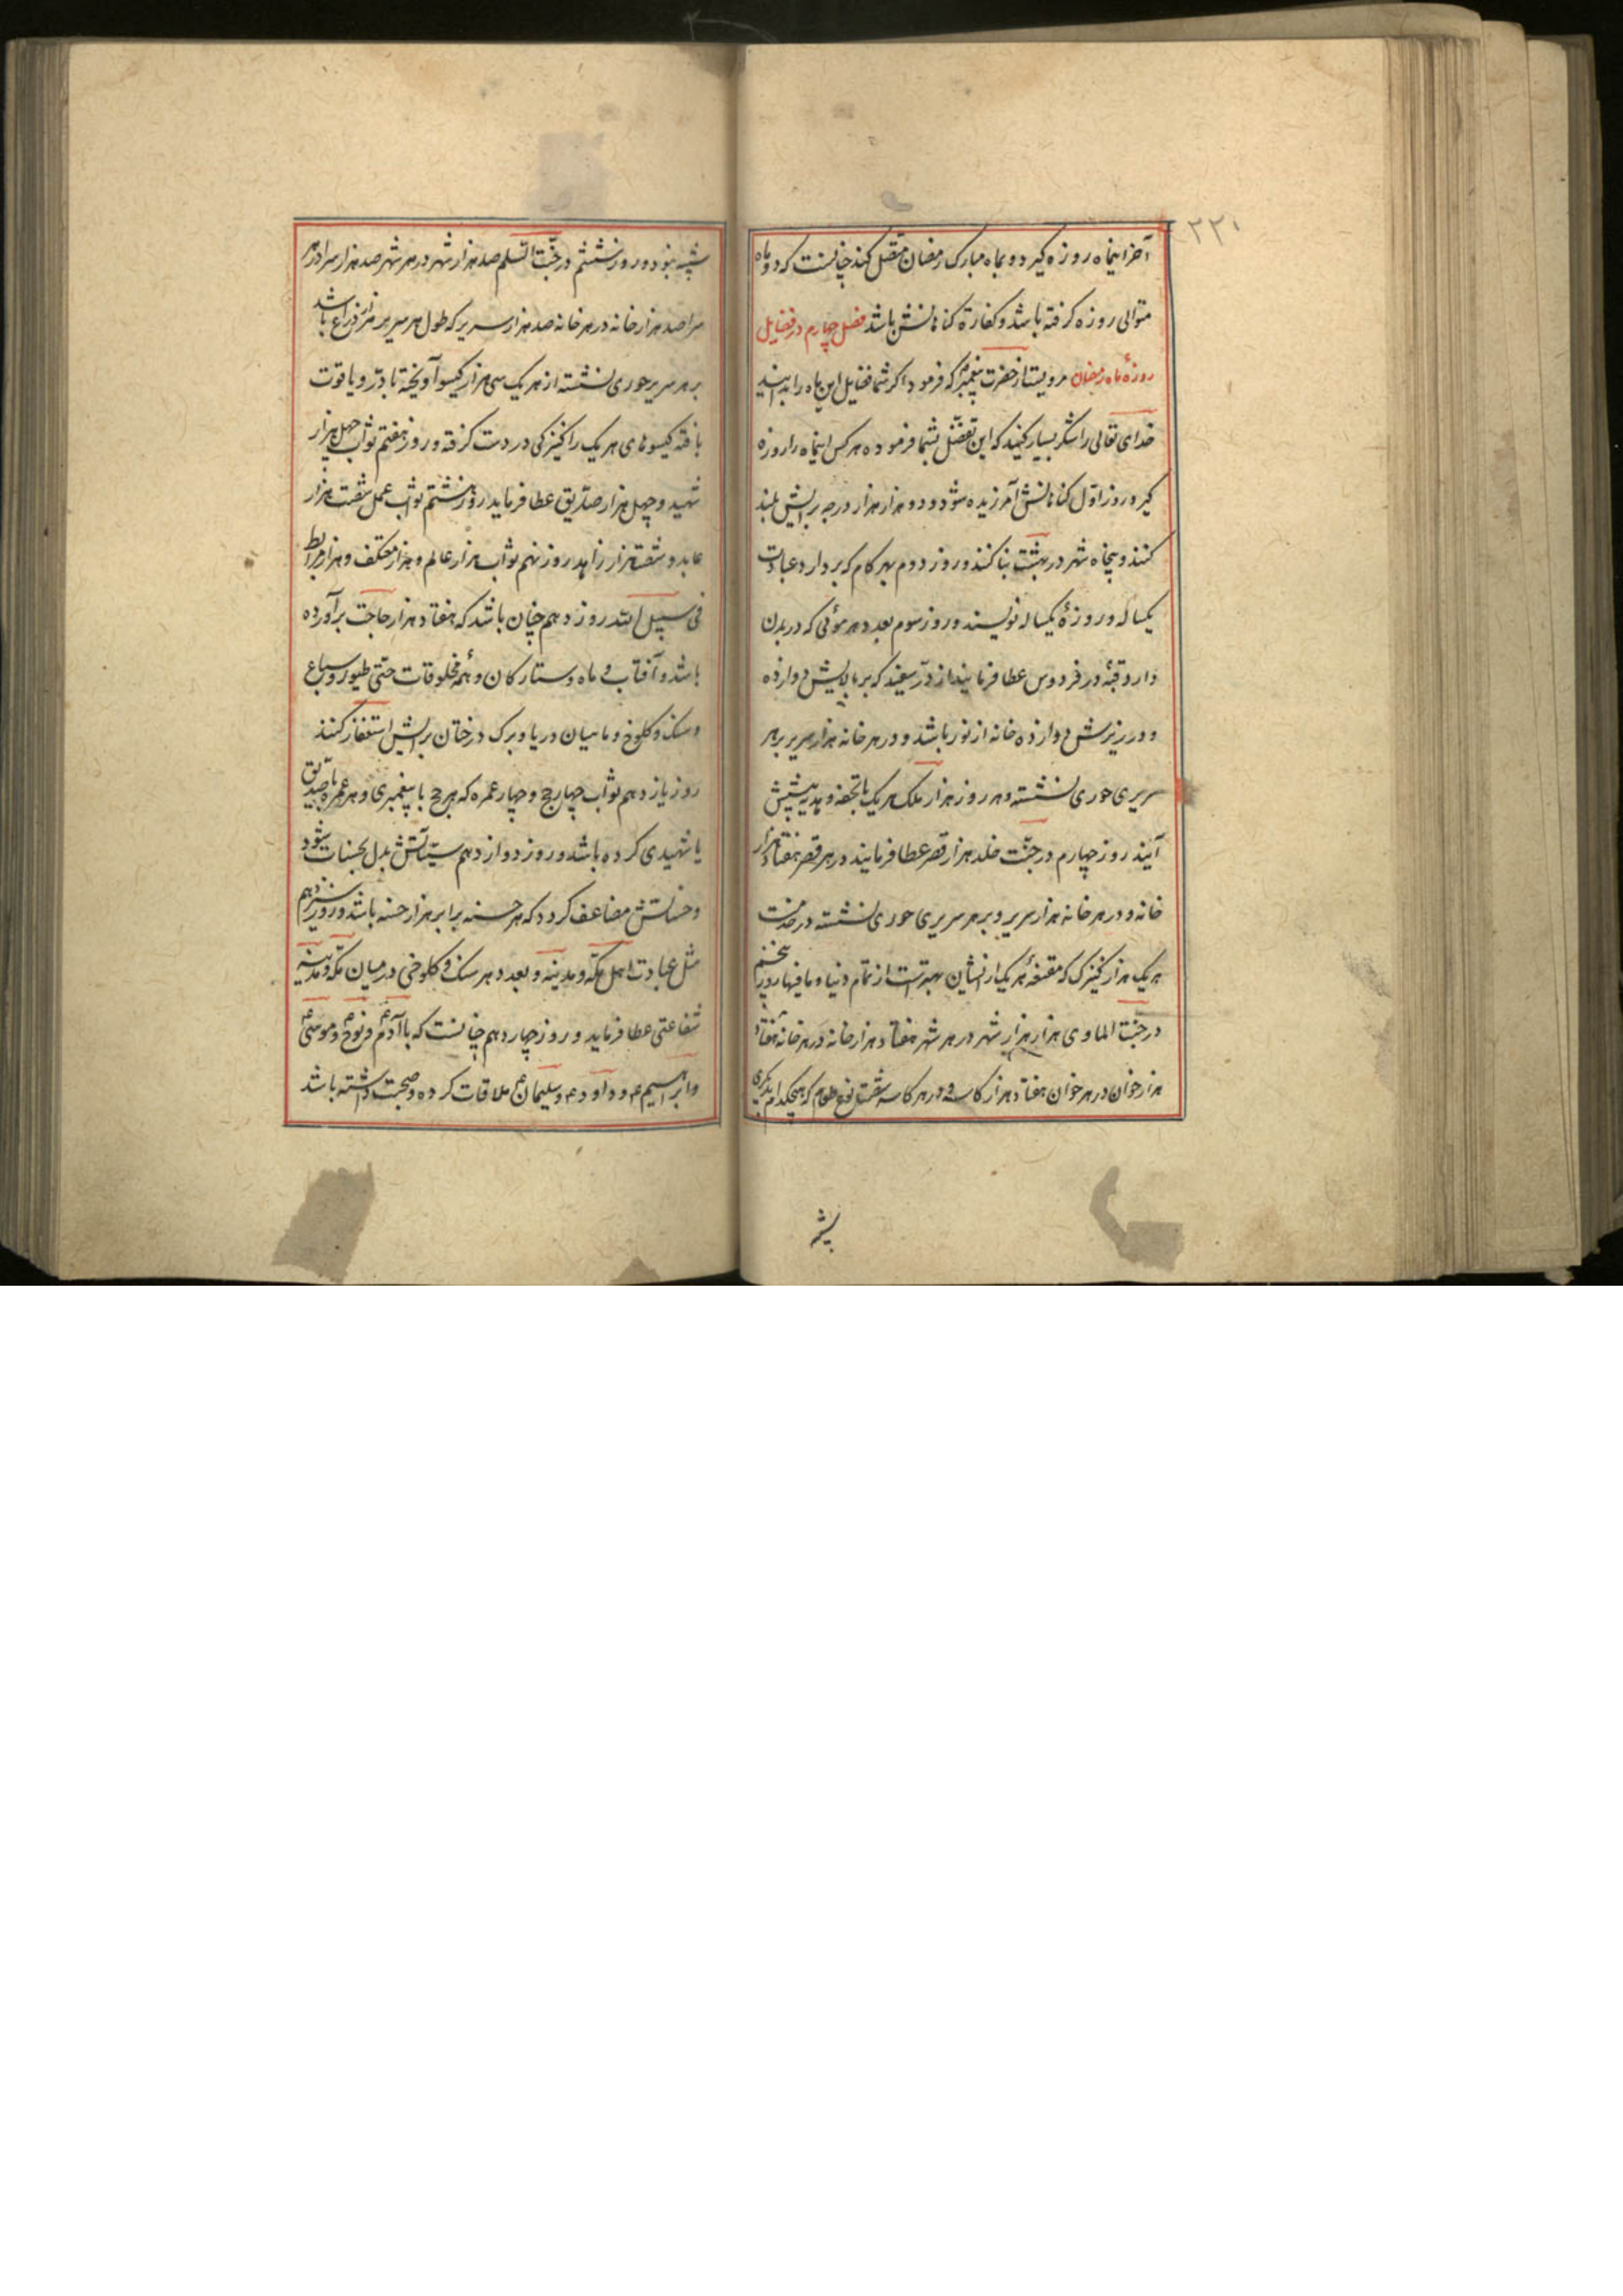 ۲۲۰
آخر اینماه روزه گیرد و بماه مبارک رمضان متصل کند چنانست که دو ماه
متوالی روزه گرفته باشد و کفارهٔ گناهانش باشد فصل چهارم در فضایل
روزهٔ ماه رمضان مرویست از حضرت پیغمبر که فرمود اگر شما فضایل این ماه را بدانید
خدای تعالی را شکر بسیار کنید که این تفضّل بشما فرموده هر کس اینماه را روزه
گیرد روز اوّل گناهانش آمرزیده شود و دو هزار هزار درجه برایش بلند
کنند و پنجاه شهر در بهشت بنا کنند و روز دوم بهر گام که بردارد عبادت
یکساله و روزهٔ یکساله نویسند و روز سوم بعدد هر موئی که در بدن
دارد قبّه در فردوس عطا فرمایند از درّ سفید که بر بالایش دوازده
و در زیرش دوازده خانه از نور باشد و در هر خانه هزار سریر بر هر
سریری حوری نشسته و هر روز هزار ملک هر یک با تحفه و هدیه پیشش
آیند روز چهارم در جنّت خلد هزار قصر عطا فرمایند در هر قصر هفتاد هزار
خانه و در هر خانه هزار سریر و بر هر سریری حوری نشسته در خدمت
هر یک هزار کنیزک که مقنعهٔ هر یک از ایشان بهتر است از تمام دنیا و ما فیها روز پنجم
در جنّت الماوی هزار هزار شهر در هر شهر هفتاد هزار خانه در هر خانه هفتاد
هزار خوان در هر خوان هفتاد هزار کاسه و در هر کاسه شصت نوع طعام که هیچکدام بدیگری
شبیه
شبیه نبود و روز ششم در جنّت السّلم صد هزار شهر در هر شهر صد هزار سرا در هر
سرا صد هزار خانه در هر خانه صد هزار سریر که طول هر سریر هزار ذراع باشد
بر هر سریر حوری نشسته از هر یک سی هزار گیسو آویخته با درّ و یاقوت
بافته گیسوهای هر یک را کنیزکی در دست گرفته و روز هفتم ثواب چهل هزار
شهید و چهل هزار صدّیق عطا فرماید روز هشتم ثواب عمل شصت هزار
عابد و شصت هزار زاهد روز نهم ثواب هزار عالم و هزار معتکف و هزار مرابط
فی سبیل الله روز دهم چنان باشد که هفتاد هزار حاجت برآورده
باشد و آفتاب و ماه و ستارگان و همهٔ مخلوقات حتّی طیور و سباع
و سنگ و کلوخ و ماهیان دریا و برگ درختان برایش استغفار کنند
روز یازدهم ثواب چهار حج و چهار عمره که هر حج با پیغمبری و هر عمره با صدیق
یا شهیدی کرده باشد و روز دوازدهم سیّئآتش بدل بحسنات شود
و حسناتش مضاعف گردد که هر حسنه برابر هزار حسنه باشد و روز سیزدهم
مثل عبادت اهل مکّه و مدینه و بعدد هر سنگ و کلوخی در میان مکّه و مدینه
شفاعتی عطا فرماید و روز چهاردهم چنانست که با آدم ع و نوح ع و موسی ع
و ابرهیم ع و داود ع و سلیمان ع ملاقات کرده و صحبت داشته باشد